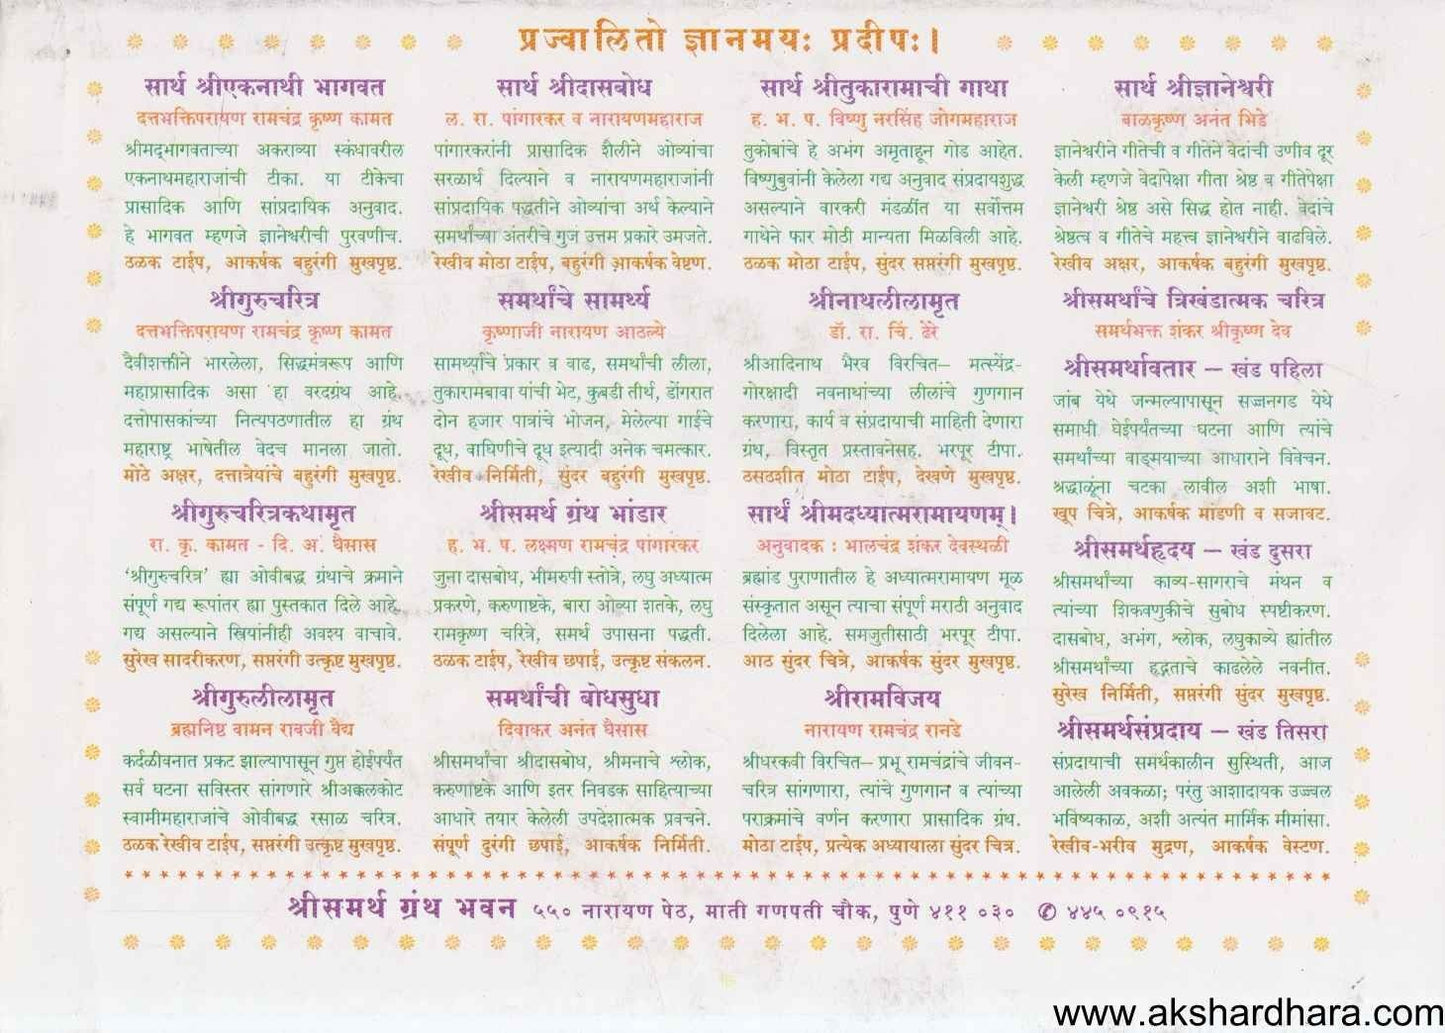 प्रज्वालितो ज्ञानमयः प्रदीपः।
सार्थ श्रीएकनाथी भागवत
दत्तभक्तिपरायण रामचंद्र कृष्ण कामत
श्रीमद्‌भागवताच्या अकराव्या स्कंधावरील
एकनाथमहाराजांची टीका. या टीकेचा
प्रासादिक आणि सांप्रदायिक अनुवाद.
हे भागवत म्हणजे ज्ञानेश्वरीची पुरवणीच.
ठळक टाईप, आकर्षक बहुरंगी मुखपृष्ठ.
श्रीगुरुचरित्र
दत्तभक्तिपरायण रामचंद्र कृष्ण कामत
दैवीशक्तीने भारलेला, सिद्धमंत्ररूप आणि
महाप्रासादिक असा हा वरदग्रंथ आहे.
दत्तोपासकांच्या नित्यपठणातील हा ग्रंथ
महाराष्ट्र भाषेतील वेदच मानला जातो.
मोठे अक्षर, दत्तात्रेयांचे बहुरंगी मुखपृष्ठ.
श्रीगुरुचरित्रकथामृत
रा. कृ. कामत - दि. अ. घैसास
‘श्रीगुरुचरित्र’ ह्या ओवीबद्ध ग्रंथाचे क्रमाने
संपूर्ण गद्य रूपांतर ह्या पुस्तकात दिले आहे.
गद्य असल्याने स्त्रियांनीही अवश्य वाचावे.
सुरेख सादरीकरण, सप्तरंगी उत्कृष्ट मुखपृष्ठ.
श्रीगुरुलीलामृत
ब्रह्मनिष्ठ वामन रावजी वैद्य
कर्दळीवनात प्रकट झाल्यापासून गुप्त होईपर्यंत
सर्व घटना सविस्तर सांगणारे श्रीअक्कलकोट
स्वामीमहाराजांचे ओवीबद्ध रसाळ चरित्र.
ठळक रेखीव टाईप, सप्तरंगी उत्कृष्ट मुखपृष्ठ.
सार्थ श्रीदासबोध
ल. रा. पांगारकर व नारायणमहाराज
पांगारकरांनी प्रासादिक शैलीने ओव्यांचा
सरळार्थ दिल्याने व नारायणमहाराजांनी
सांप्रदायिक पद्धतीने ओव्यांचा अर्थ केल्याने
समर्थांच्या अंतरीचे गुज उत्तम प्रकारे उमजते.
रेखीव मोठा टाईप, बहुरंगी आकर्षक वेष्टण.
समर्थांचे सामर्थ्य
कृष्णाजी नारायण आठल्ये
सामर्थ्याचे प्रकार व वाढ, समर्थांची लीला,
तुकारामबावा यांची भेट, कुबडी तीर्थ, डोंगरात
दोन हजार पात्रांचे भोजन, मेलेल्या गाईचे
दूध, वाघिणीचे दूध इत्यादी अनेक चमत्कार.
रेखीव निर्मिती, सुंदर बहुरंगी मुखपृष्ठ.
श्रीसमर्थ ग्रंथ भांडार
ह. भ. प. लक्ष्मण रामचंद्र पांगारकर
जुना दासबोध, भीमरुपी स्तोत्रे, लघु अध्यात्म
प्रकरणे, करुणाष्टके, बारा ओव्या शतके, लघु
रामकृष्ण चरित्रे, समर्थ उपासना पद्धती.
ठळक टाईप, रेखीव छपाई, उत्कृष्ट संकलन.
समर्थांची बोधसुधा
दिवाकर अनंत घैसास
श्रीसमर्थांचा श्रीदासबोध, श्रीमनाचे श्लोक,
करुणाष्टके आणि इतर निवडक साहित्याच्या
आधारे तयार केलेली उपदेशात्मक प्रवचने.
संपूर्ण दुरंगी छपाई, आकर्षक निर्मिती.
सार्थ श्रीतुकारामाची गाथा
ह. भ. प. विष्णु नरसिंह जोगमहाराज
तुकोबांचे हे अभंग अमृताहून गोड आहेत.
विष्णुबुवांनी केलेला गद्य अनुवाद संप्रदायशुद्ध
असल्याने वारकरी मंडळींत या सर्वोत्तम
गाथेने फार मोठी मान्यता मिळविली आहे.
ठळक मोठा टाईप, सुंदर सप्तरंगी मुखपृष्ठ.
श्रीनाथलीलामृत
डॉ. रा. चिं. ढेरे
श्रीआदिनाथ भैरव विरचित– मत्स्येंद्र-
गोरक्षादी नवनाथांच्या लीलांचे गुणगान
करणारा, कार्य व संप्रदायाची माहिती देणारा
ग्रंथ, विस्तृत प्रस्तावनेसह. भरपूर टीपा.
ठसठशीत मोठा टाईप, देखणे मुखपृष्ठ.
सार्थं श्रीमदध्यात्मरामायणम्।
अनुवादक : भालचंद्र शंकर देवस्थळी
ब्रह्मांड पुराणातील हे अध्यात्मरामायण मूळ
संस्कृतात असून त्याचा संपूर्ण मराठी अनुवाद
दिलेला आहे. समजुतीसाठी भरपूर टीपा.
आठ सुंदर चित्रे, आकर्षक सुंदर मुखपृष्ठ.
श्रीरामविजय
नारायण रामचंद्र रानडे
श्रीधरकवी विरचित– प्रभू रामचंद्रांचे जीवन-
चरित्र सांगणारा, त्यांचे गुणगान व त्यांच्या
पराक्रमांचे वर्णन करणारा प्रासादिक ग्रंथ.
मोठा टाईप, प्रत्येक अध्यायाला सुंदर चित्र.
सार्थ श्रीज्ञानेश्वरी
बाळकृष्ण अनंत भिडे
ज्ञानेश्वरीने गीतेची व गीतेने वेदांची उणीव दूर
केली म्हणजे वेदापेक्षा गीता श्रेष्ठ व गीतेपेक्षा
ज्ञानेश्वरी श्रेष्ठ असे सिद्ध होत नाही. वेदांचे
श्रेष्ठत्व व गीतेचे महत्त्व ज्ञानेश्वरीने वाढविले.
रेखीव अक्षर, आकर्षक बहुरंगी मुखपृष्ठ.
श्रीसमर्थांचे त्रिखंडात्मक चरित्र
समर्थभक्त शंकर श्रीकृष्ण देव
श्रीसमर्थावतार – खंड पहिला
जांब येथे जन्मल्यापासून सज्जनगड येथे
समाधी घेईपर्यंतच्या घटना आणि त्यांचे
समर्थांच्या वाङ्मयाच्या आधाराने विवेचन.
श्रद्धाळूंना चटका लावील अशी भाषा.
खूप चित्रे, आकर्षक मांडणी व सजावट.
श्रीसमर्थहृदय – खंड दुसरा
श्रीसमर्थांच्या काव्य-सागराचे मंथन व
त्यांच्या शिकवणुकीचे सुबोध स्पष्टीकरण.
दासबोध, अभंग, श्लोक, लघुकाव्ये ह्यांतील
श्रीसमर्थांच्या हृद्गताचे काढलेले नवनीत.
सुरेख निर्मिती, सप्तरंगी सुंदर मुखपृष्ठ.
श्रीसमर्थसंप्रदाय – खंड तिसरा
संप्रदायाची समर्थकालीन सुस्थिती, आज
आलेली अवकळा; परंतु आशादायक उज्ज्वल
भविष्यकाळ, अशी अत्यंत मार्मिक मीमांसा.
रेखीव-भरीव मुद्रण, आकर्षक वेस्टण.
श्रीसमर्थ ग्रंथ भवन ५५० नारायण पेठ, माती गणपती चौक, पुणे ४११ ०३० ✆ ४४५ ०९१५
www.akshardhara.com